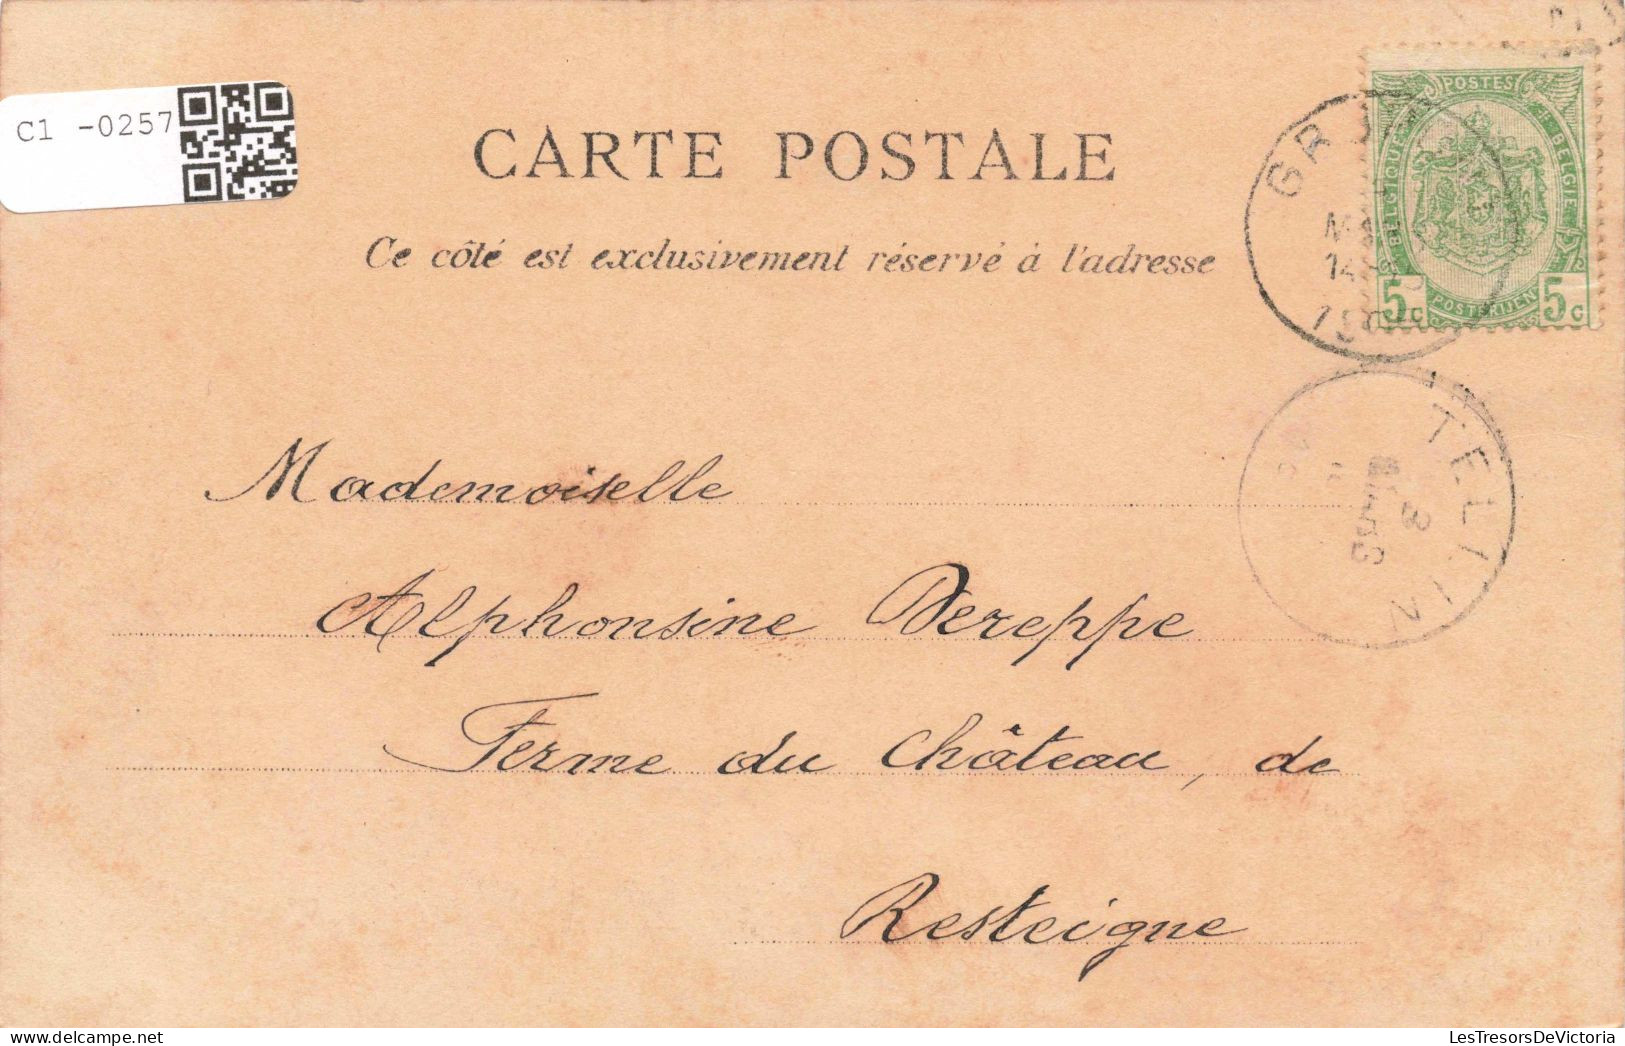 C1 -0257
CARTE POSTALE
Ce côté est exclusivement réservé à l'adresse
POSTES
BELGIQUE
BELGIË
5c POSTERIJEN 5c
TELLIN
3
Mademoiselle
Alphonsine Dereppe
Ferme du Château, de
Resteigne
LesTresorsDeVictoria